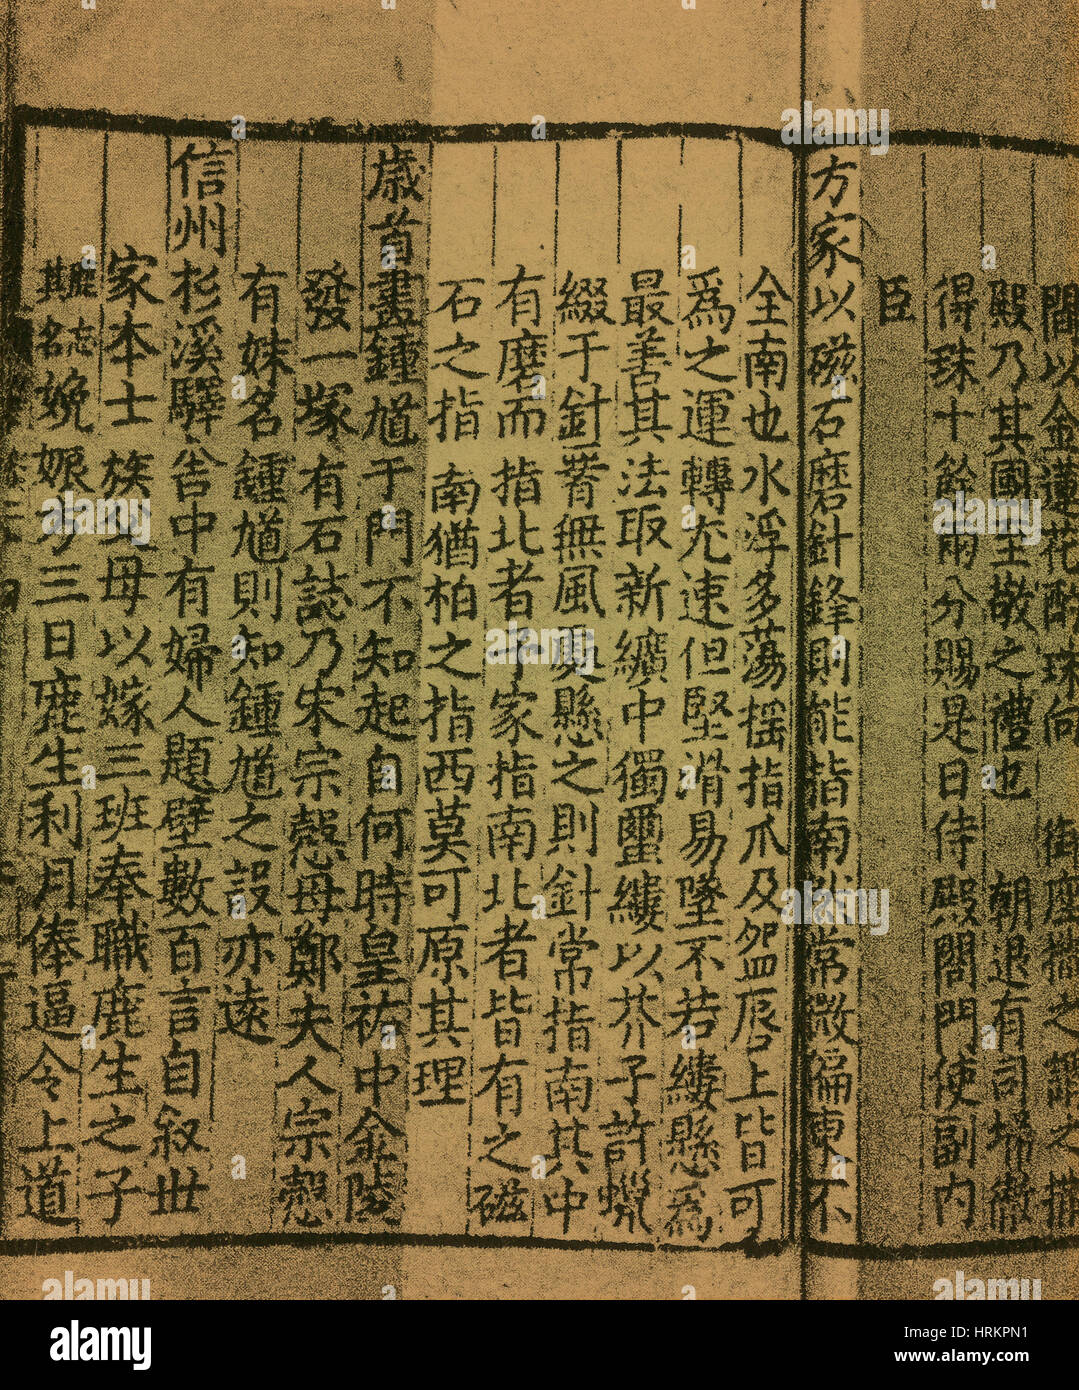 閣以金蓮花酌珠向 御座撒之謂之撒
殿乃其國至敬之禮也 朝退有司掃徹
得珠十餘兩分賜是日侍殿閣門使副内
臣
方家以磁石磨針鋒則能指南然常微偏東不
全南也水浮多蕩搖指爪及盌唇上皆可
爲之運轉尤速但堅滑易墜不若縷懸爲
最善其法取新纊中獨璽縷以芥子許蠟
綴于針葺無風處懸之則針常指南其中
有磨而指北者予家指南北者皆有之磁
石之指南猶柏之指西莫可原其理
歲首畫鍾馗于門不知起自何時皇祐中金陵
發一塚有石誌乃宋宗慤母鄭夫人宗慤
有妹名鍾馗則知鍾馗之設亦遠
信州杉溪驛舍中有婦人題壁數百言自叙世
家本士族父母以嫁三班奉職鹿生之子
鹿忘其名娩娠方三日鹿生利月俸逼令上道
alamy
HRKPN1
www.alamy.com